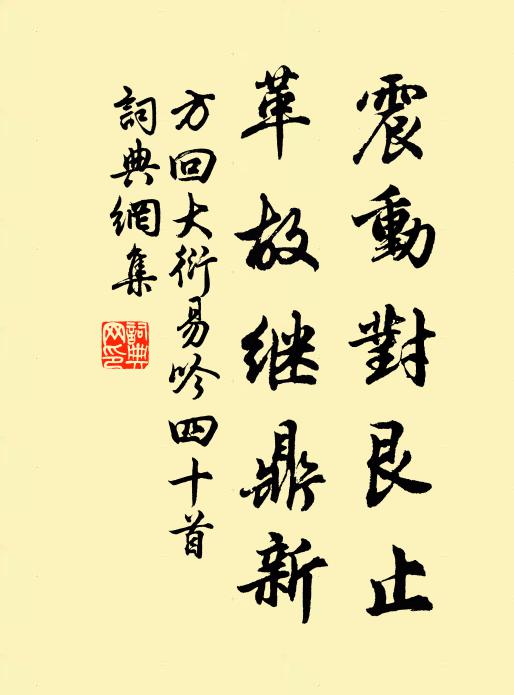 震動對艮止
革故继鼎新
方回大衍易吟四十首
詞典網集
詞典網印